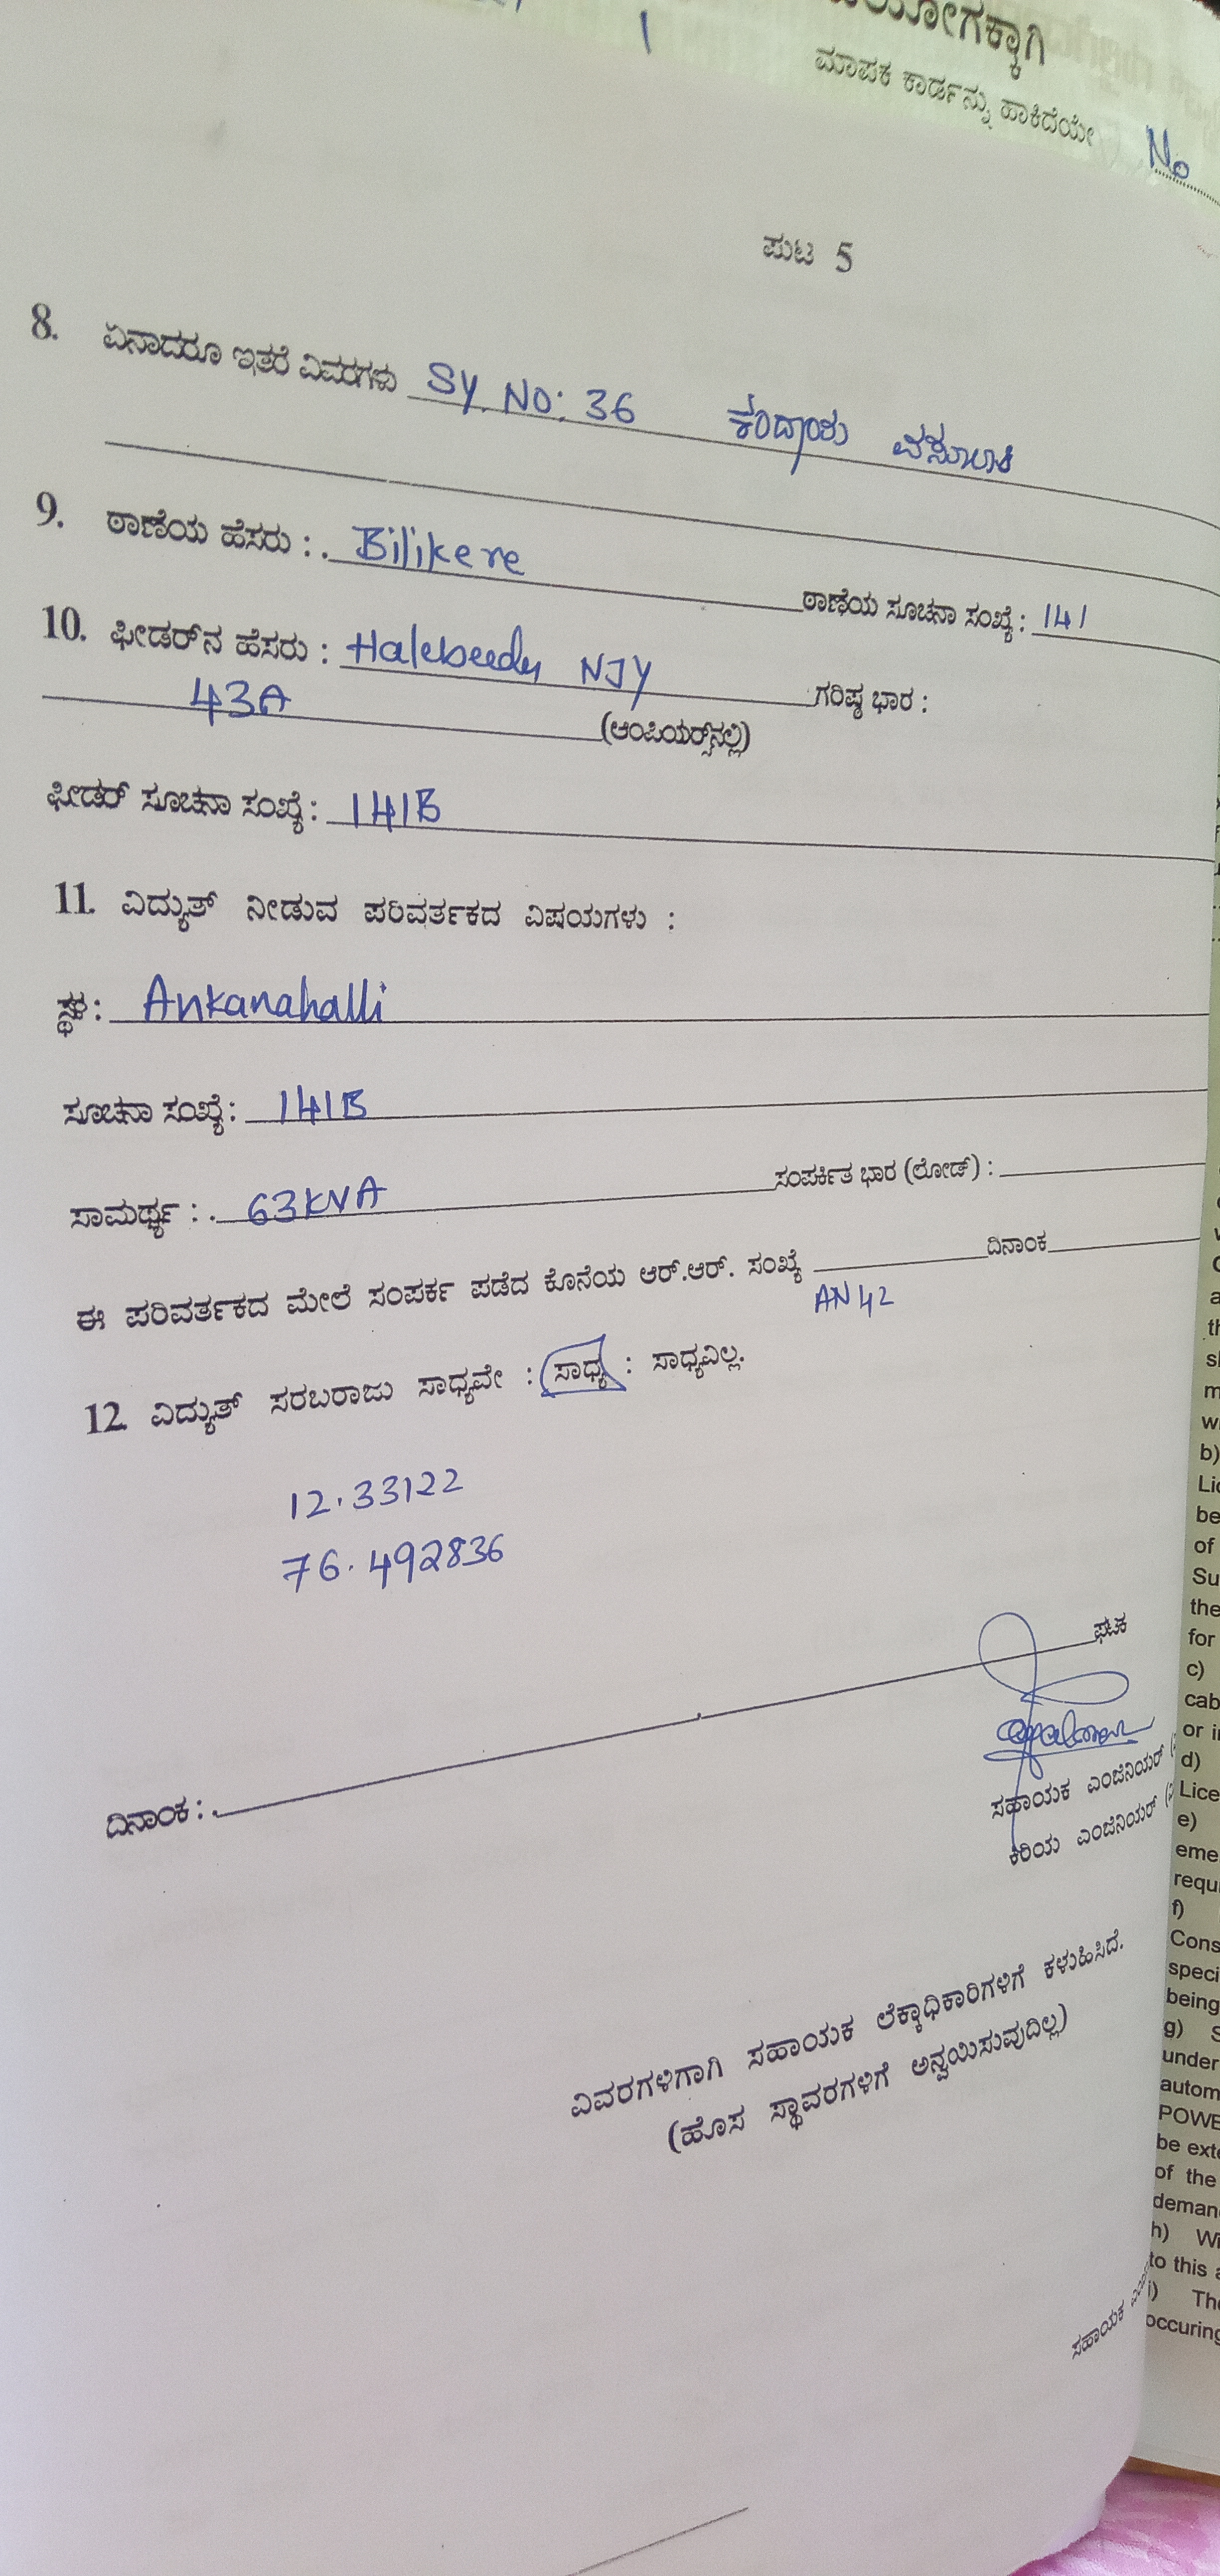 ಮಾಪಕ ಕಾರ್ಡನ್ನು ಹಾಕಿದೆಯೇ No
ಪುಟ 5
8. ಏನಾದರೂ ಇತರೆ ವಿವರಗಳು SY. NO: 36 ಕಂದಾಯ ವಸೂಲಾತಿ
9. ಠಾಣೆಯ ಹೆಸರು : Bilikere ಠಾಣೆಯ ಸೂಚನಾ ಸಂಖ್ಯೆ : 141
10. ಫೀಡರ್‌ನ ಹೆಸರು : Halebeedu NJY ಗರಿಷ್ಠ ಭಾರ :
43A (ಆಂಪಿಯರ್ಸ್‌ನಲ್ಲಿ)
ಫೀಡರ್ ಸೂಚನಾ ಸಂಖ್ಯೆ : 141B
11. ವಿದ್ಯುತ್ ನೀಡುವ ಪರಿವರ್ತಕದ ವಿಷಯಗಳು :
ಸ್ಥಳ : Ankanahalli
ಸೂಚನಾ ಸಂಖ್ಯೆ : 141B
ಸಾಮರ್ಥ್ಯ : 63KVA ಸಂಪರ್ಕಿತ ಭಾರ (ಲೋಡ್) :
ಈ ಪರಿವರ್ತಕದ ಮೇಲೆ ಸಂಪರ್ಕ ಪಡೆದ ಕೊನೆಯ ಆರ್.ಆರ್. ಸಂಖ್ಯೆ ದಿನಾಂಕ
AN 42
12. ವಿದ್ಯುತ್ ಸರಬರಾಜು ಸಾಧ್ಯವೇ : ಸಾಧ್ಯ : ಸಾಧ್ಯವಿಲ್ಲ.
12.33122
76.492836
ಘಟಕ
ದಿನಾಂಕ :
ಸಹಾಯಕ ಎಂಜಿನಿಯರ್
ಕಿರಿಯ ಎಂಜಿನಿಯರ್
ವಿವರಗಳಿಗಾಗಿ ಸಹಾಯಕ ಲೆಕ್ಕಾಧಿಕಾರಿಗಳಿಗೆ ಕಳುಹಿಸಿದೆ.
(ಹೊಸ ಸ್ಥಾವರಗಳಿಗೆ ಅನ್ವಯಿಸುವುದಿಲ್ಲ)
ಸಹಾಯಕ